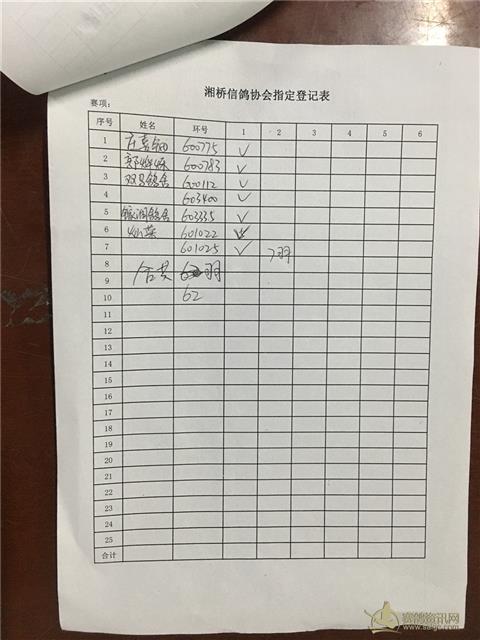 湘桥信鸽协会指定登记表
赛项:
序号 姓名 环号 1 2 3 4 5 6
1 600775 ✓
2 600783 ✓
3 双号鸽舍 600112 ✓
4 603400 ✓
5 鸽舍 603335 ✓
6 601022 ✓
7 601025 ✓ 7羽
8 合共 羽
9
10 62
11
12
13
14
15
16
17
18
19
20
21
22
23
24
25
合计
赛鸽资讯网